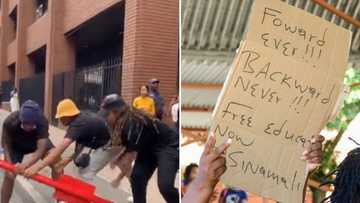 Foward
ever!!!
BACKward
Never!!!
Free educa
Now
Sinamali